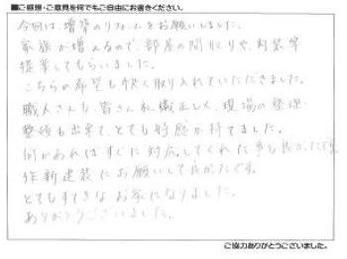 ■ご感想・ご意見を何でもご自由にお書きください。
今回は、増築のリフォームをお願いしました。
家族が増えるので、部屋の間取りや、内装等
提案してもらいました。
こちらの希望も快く取り入れていただきました。
職人さんも、皆さん礼儀正しく、現場の整理・
整頓も出来て、とても好感が持てました。
何かあればすぐに対応してくれた事も良かったです。
作新建装にお願いして良かったです。
とてもすてきなお家になりました。
ありがとうございました。
ご協力ありがとうございました。